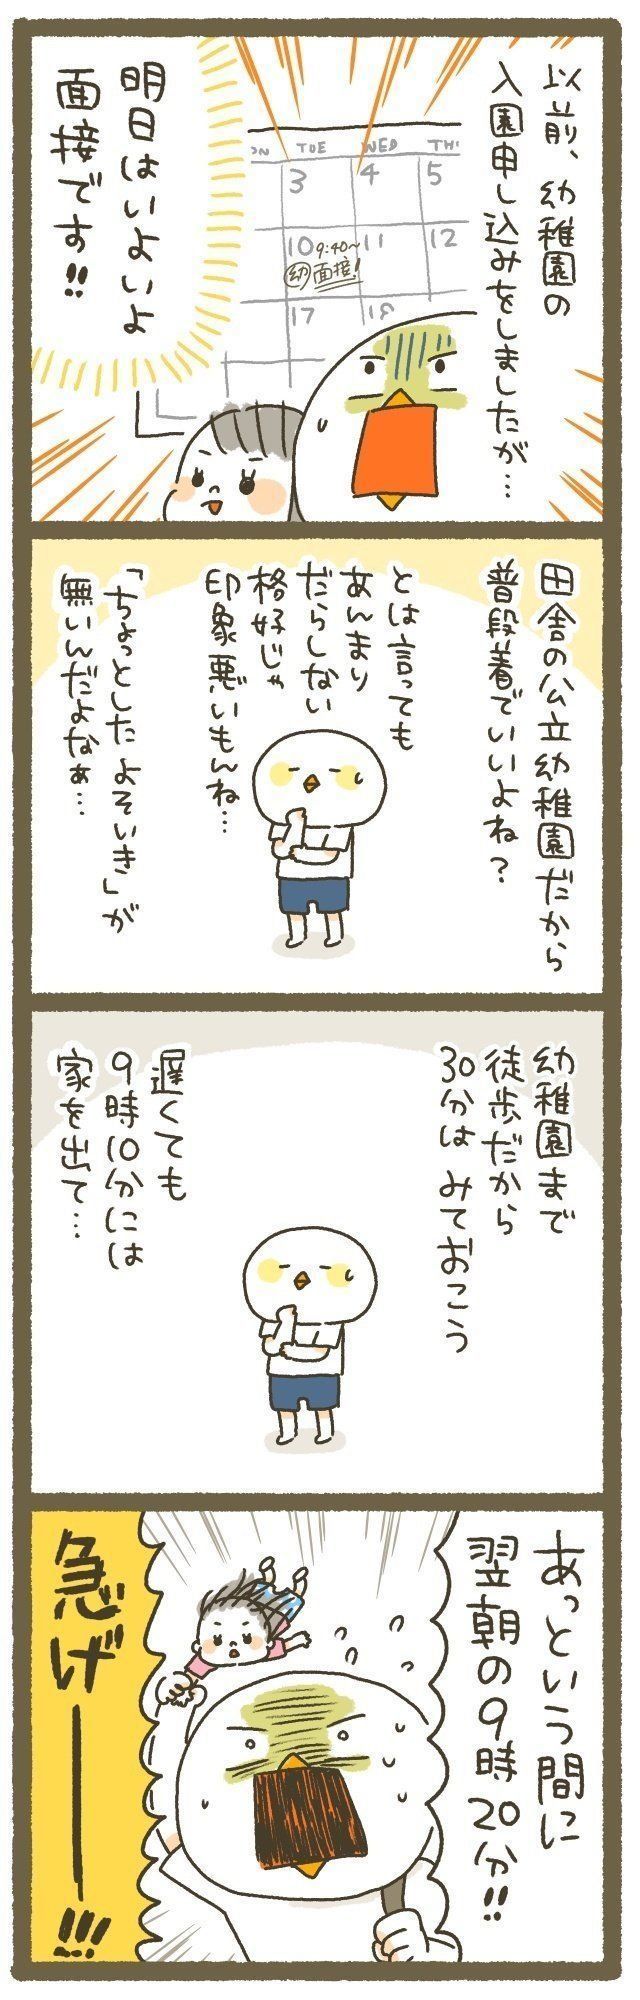 以前、幼稚園の
入園申し込みをしましたが…
TUE
WED
3
4
5
10
9:40〜
幼面接!
11
12
17
18
明日はいよいよ
面接です!!
田舎の公立幼稚園だから
普段着でいいよね?
とは言っても
あんまり
だらしない
格好じゃ
印象悪いもんね…
「ちょっとしたよそいき」が
無いんだよなぁ…
幼稚園まで
徒歩だから
30分は みておこう
遅くても
9時10分には
家を出て…
あっという間に
翌朝の9時20分!!
急げーーー!!!